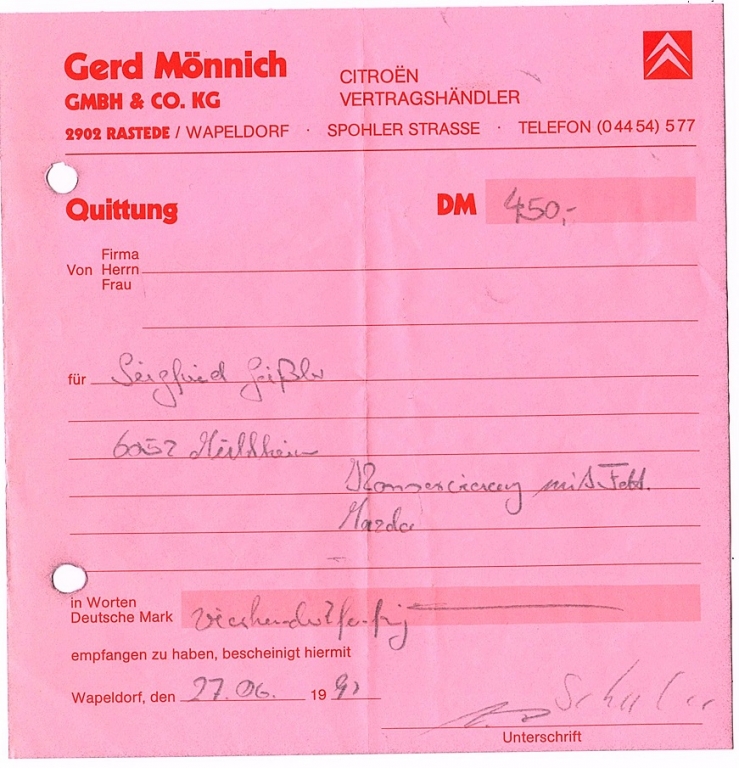 Gerd Mönnich
GMBH & CO. KG
CITROËN
VERTRAGSHÄNDLER
2902 RASTEDE / WAPELDORF · SPOHLER STRASSE · TELEFON (0 44 54) 5 77
Quittung DM 450,-
Firma
Von Herrn
Frau
für Seigfried Geißler
6052 Mühlheim
Konservierung mit Fett.
Mazda
in Worten
Deutsche Mark vierhundertfünfzig
empfangen zu haben, bescheinigt hiermit
Wapeldorf, den 27.06. 19
Unterschrift